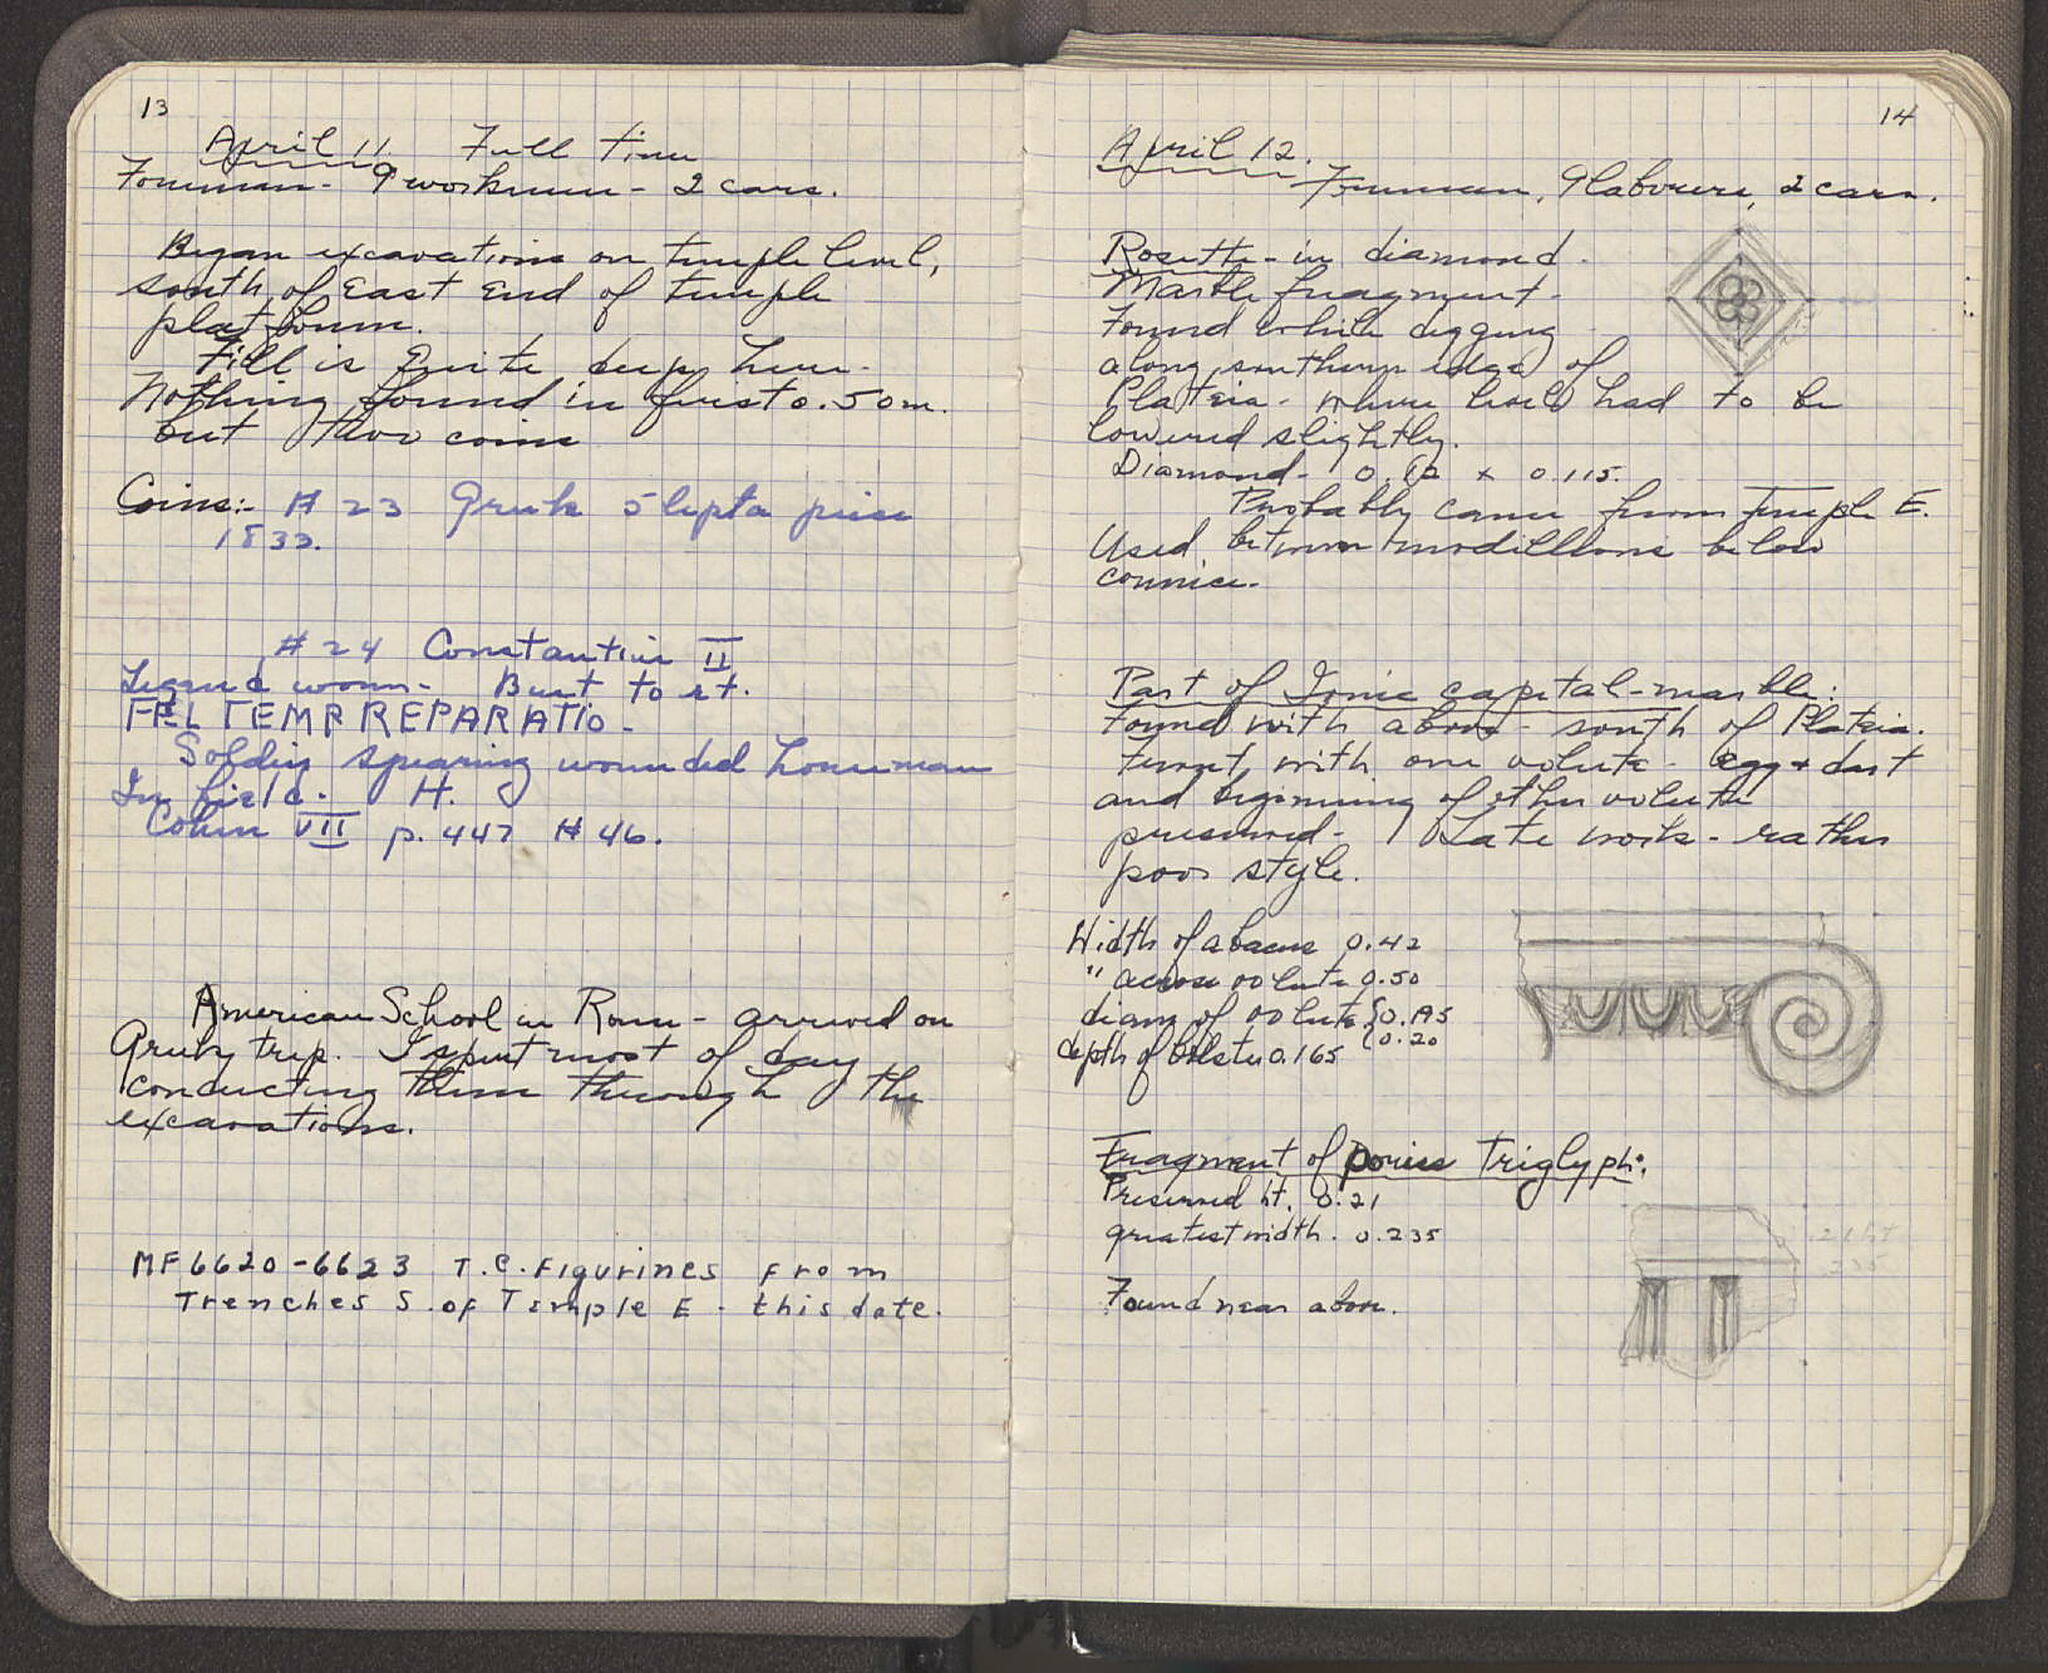 13
April 11 Full time
Foreman - 9 workmen - 2 cars.
Began excavations on temple level,
south of East End of temple
platform.
Fill is quite deep here.
Nothing found in first 0.50 m.
but two coins
Coins:- # 23 Greek 5 lepta piece
1833.
# 24 Constantius II
Legend worn - Bust to rt.
FEL TEMP REPARATIO -
Soldier spearing wounded horseman
In field - H.
Cohen VII p. 447 # 46.
American School in Rome - arrived on
Greek trip. I spent most of day
conducting them through the
excavations.
MF 6620-6623 T.C. Figurines From
Trenches S. of Temple E - this date.
14
April 12.
Foreman, 9 labourers, 2 cars.
Rosette - in diamond -
Marble fragment -
Found while digging
along southern edge of
Plateia - where level had to be
lowered slightly.
Diamond - 0.12 x 0.115.
Probably came from Temple E.
Used between modillions below
cornice.
Part of Ionic capital - marble:
Found with above - south of Plateia.
Front with one volute - egg + dart
and beginning of other volute
preserved - Late work - rather
poor style.
Width of abacus 0.42
" across volute 0.50
diam of volute {0.195
{0.20
depth of bolster 0.165
Fragment of poros Triglyph:
Preserved ht. 0.21
greatest width. 0.235
Found near above.